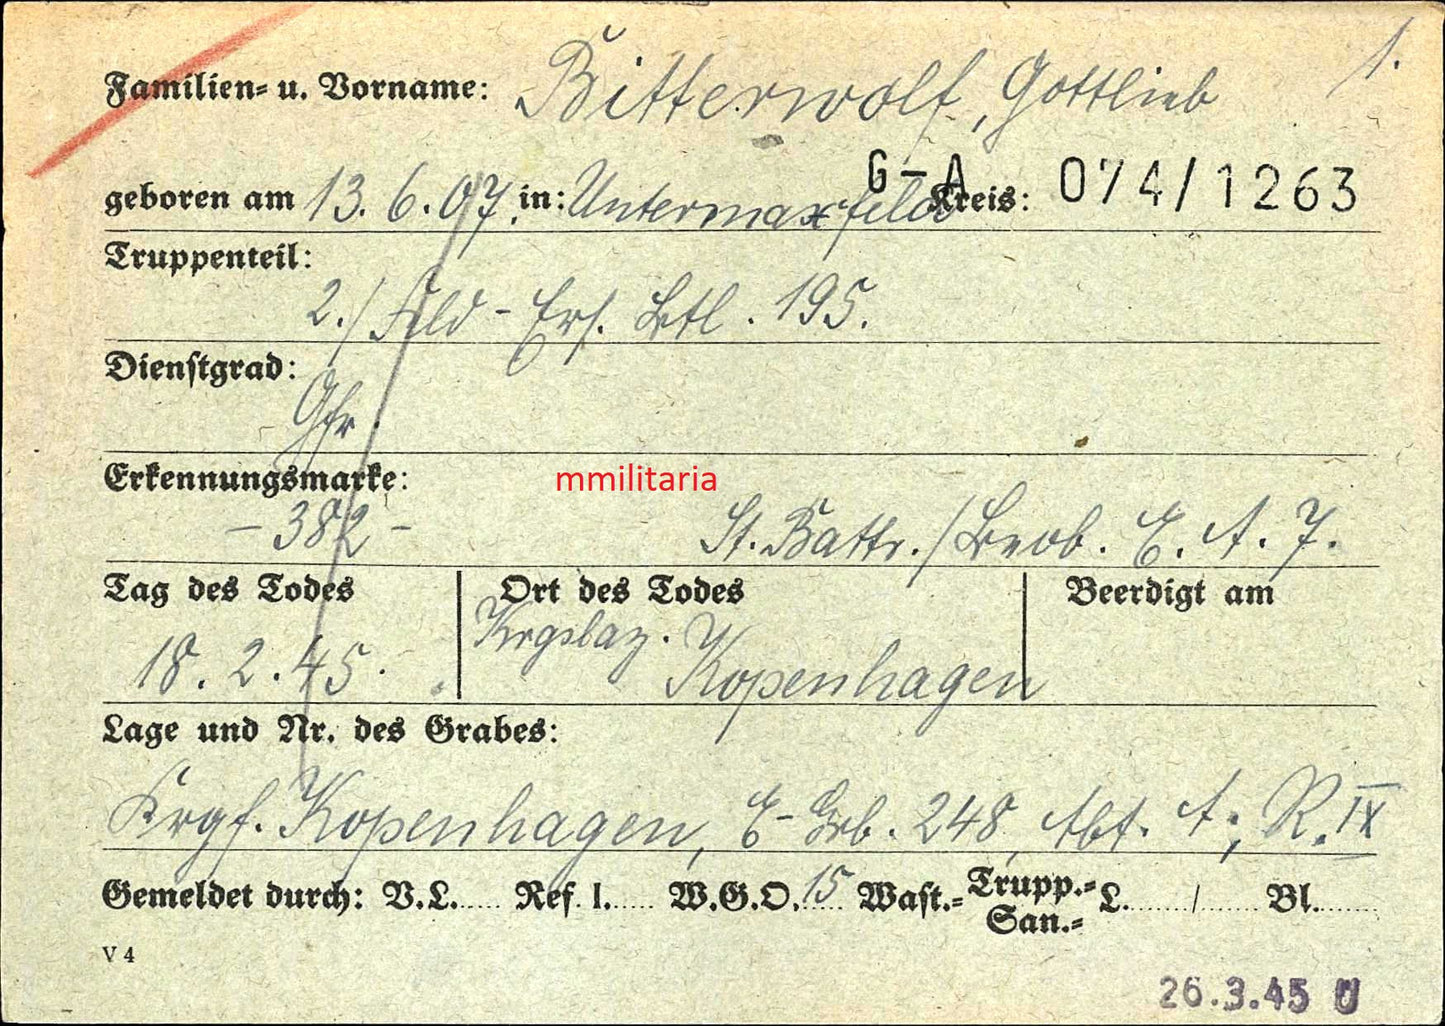 1.
Familien- u. Vorname: Bitterwolf, Gottlieb
G-A 074/1263
geboren am 13.6.07. in: Untermaxfeld Kreis:
Truppenteil:
2./Feld-Ers. Btl. 195.
Dienstgrad:
Gfr.
Erkennungsmarke:
mmilitaria
-382- St. Battr./Beob. E. A. 7.
Tag des Todes Ort des Todes Beerdigt am
18. 2. 45. Krgslaz. Kopenhagen
Lage und Nr. des Grabes:
Krgf. Kopenhagen, E-Grb. 248, Abt. A; R. IX
Gemeldet durch: V.L..... Ref. I..... W.G.O. 15 Wast.= Trupp.= San.= L......../........ Bl.........
V 4
26.3.45 U